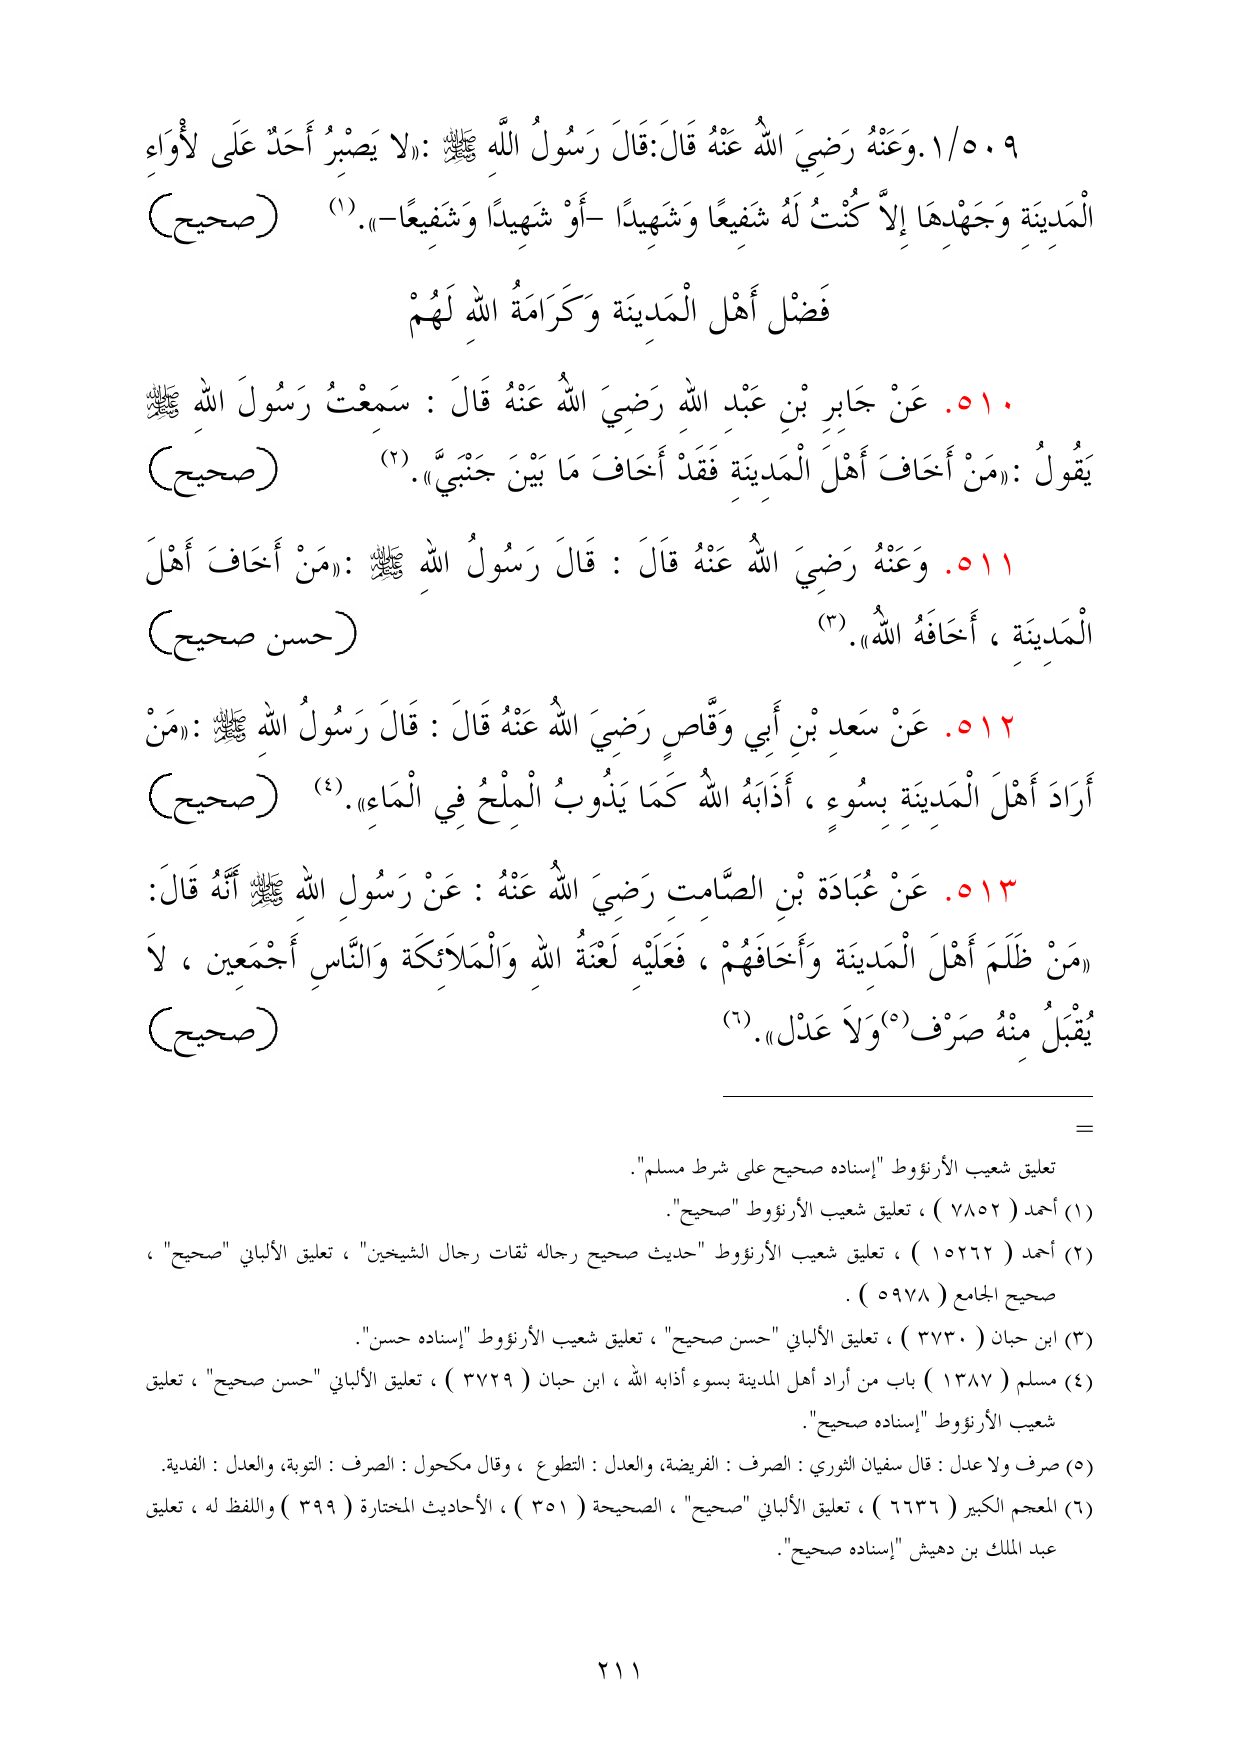 ١/٥٠٩.وَعَنْهُ رَضِيَ اللهُ عَنْهُ قَالَ:قَالَ رَسُولُ اللَّهِ ﷺ :«لا يَصْبِرُ أَحَدٌ عَلَى لأْوَاءِ
الْمَدِينَةِ وَجَهْدِهَا إِلاَّ كُنْتُ لَهُ شَفِيعًا وَشَهِيدًا –أَوْ شَهِيدًا وَشَفِيعًا–».(١) (صحيح)
فَضْل أَهْل الْمَدِينَة وَكَرَامَةُ اللهِ لَهُمْ
٥١٠. عَنْ جَابِرِ بْنِ عَبْدِ اللهِ رَضِيَ اللهُ عَنْهُ قَالَ : سَمِعْتُ رَسُولَ اللهِ ﷺ
يَقُولُ :«مَنْ أَخَافَ أَهْلَ الْمَدِينَةِ فَقَدْ أَخَافَ مَا بَيْنَ جَنْبَيَّ».(٢) (صحيح)
٥١١. وَعَنْهُ رَضِيَ اللهُ عَنْهُ قاَلَ : قَالَ رَسُولُ اللهِ ﷺ :«مَنْ أَخَافَ أَهْلَ
الْمَدِينَةِ ، أَخَافَهُ اللهُ».(٣) (حسن صحيح)
٥١٢. عَنْ سَعدِ بْنِ أَبِي وَقَّاصٍ رَضِيَ اللهُ عَنْهُ قَالَ : قَالَ رَسُولُ اللهِ ﷺ :«مَنْ
أَرَادَ أَهْلَ الْمَدِينَةِ بِسُوءٍ ، أَذَابَهُ اللهُ كَمَا يَذُوبُ الْمِلْحُ فِي الْمَاءِ».(٤) (صحيح)
٥١٣. عَنْ عُبَادَة بْنِ الصَّامِتِ رَضِيَ اللهُ عَنْهُ : عَنْ رَسُولِ اللهِ ﷺ أَنَّهُ قَالَ:
«مَنْ ظَلَمَ أَهْلَ الْمَدِينَة وَأَخَافَهُمْ ، فَعَلَيْهِ لَعْنَةُ اللهِ وَالْمَلاَئِكَة وَالنَّاسِ أَجْمَعِين ، لاَ
يُقْبَلُ مِنْهُ صَرْف(٥)وَلاَ عَدْل».(٦) (صحيح)
=
تعليق شعيب الأرنؤوط "إسناده صحيح على شرط مسلم".
(١) أحمد ( ٧٨٥٢ ) ، تعليق شعيب الأرنؤوط "صحيح".
(٢) أحمد ( ١٥٢٦٢ ) ، تعليق شعيب الأرنؤوط "حديث صحيح رجاله ثقات رجال الشيخين" ، تعليق الألباني "صحيح" ،
صحيح الجامع ( ٥٩٧٨ ) .
(٣) ابن حبان ( ٣٧٣٠ ) ، تعليق الألباني "حسن صحيح" ، تعليق شعيب الأرنؤوط "إسناده حسن".
(٤) مسلم ( ١٣٨٧ ) باب من أراد أهل المدينة بسوء أذابه الله ، ابن حبان ( ٣٧٢٩ ) ، تعليق الألباني "حسن صحيح" ، تعليق
شعيب الأرنؤوط "إسناده صحيح".
(٥) صرف ولا عدل : قال سفيان الثوري : الصرف : الفريضة، والعدل : التطوع ، وقال مكحول : الصرف : التوبة، والعدل : الفدية.
(٦) المعجم الكبير ( ٦٦٣٦ ) ، تعليق الألباني "صحيح" ، الصحيحة ( ٣٥١ ) ، الأحاديث المختارة ( ٣٩٩ ) واللفظ له ، تعليق
عبد الملك بن دهيش "إسناده صحيح".
٢١١